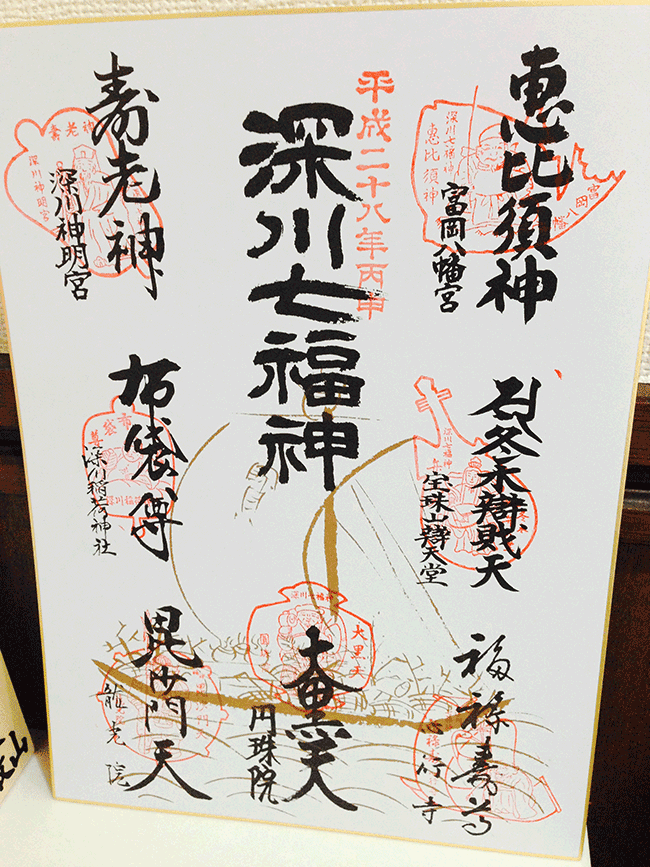 恵比須神
富岡八幡宮
深川七福神
恵比須神
富岡八幡宮
冬木辯財天
宝珠山辯天堂
深川七福神
福禄寿尊
心行寺
平成二十八年丙申
深川七福神
大黒天
円珠院
深川七福神
大黒天
寿老神
深川神明宮
寿老神
深川神明宮
布袋尊
深川稲荷神社
毘沙門天
龍光院